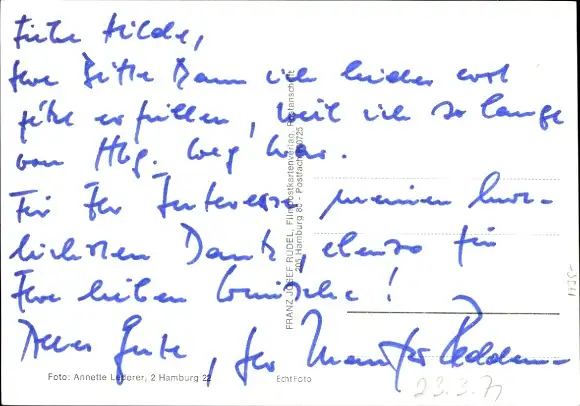 Liebe Hilde,
Ihre Bitte kann ich leider erst
jetzt erfüllen, weil ich so lange
von Hbg. weg war.
Für Ihr Interesse meinen herz-
lichsten Dank, ebenso für
Ihre lieben Wünsche!
Alles Gute, Ihr Manfred
23.3.77
FRANZ JOSEF RÜDEL, Filmpostkartenverlag,
205 Hamburg 80 - Postfach
Foto: Annette Lederer, 2 Hamburg 22
Echt Foto